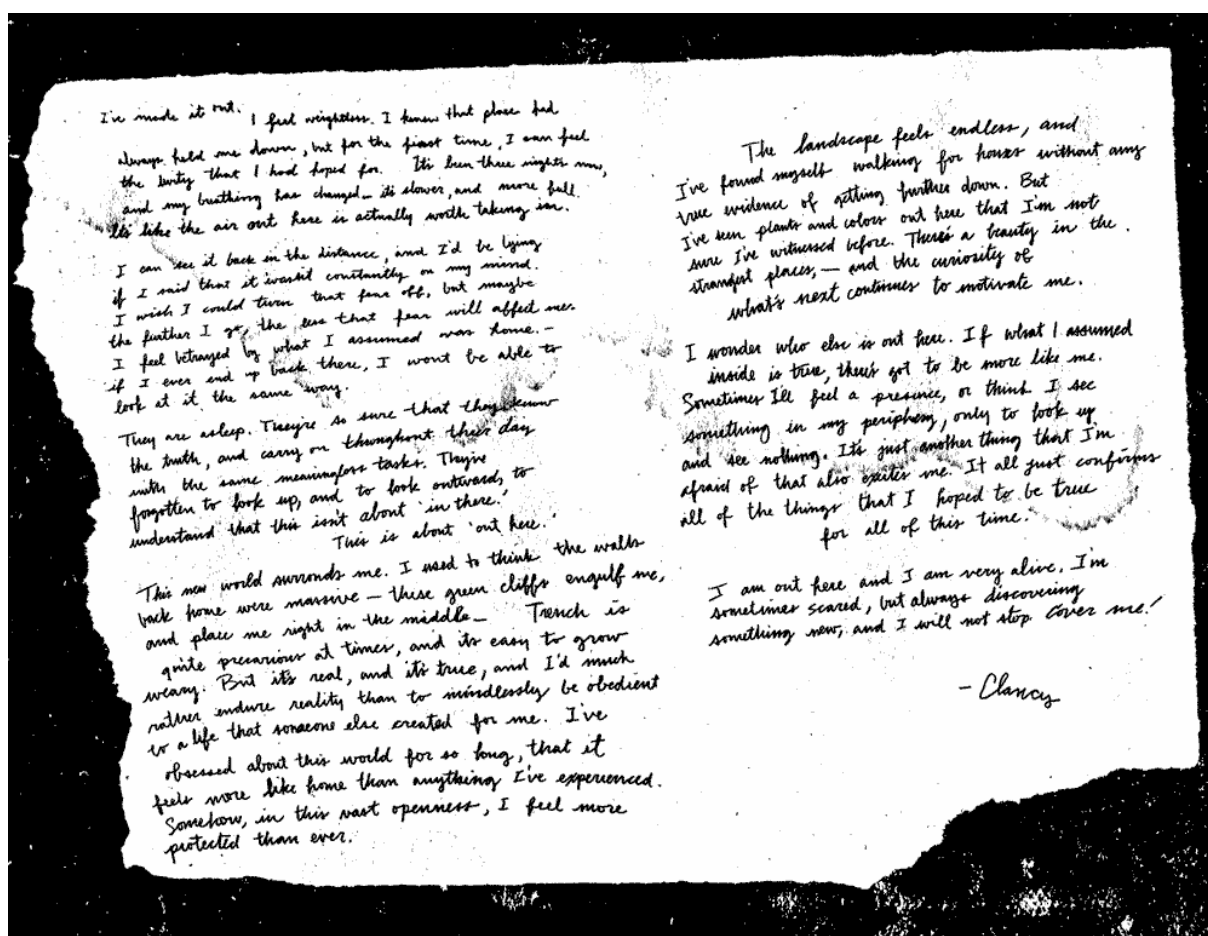 I've made it out. I feel weightless. I knew that place had
always held me down, but for the first time, I can feel
the levity that I had hoped for. It's been three nights now,
and my breathing has changed— it's slower, and more full.
It's like the air out here is actually worth taking in.
I can see it back in the distance, and I'd be lying
if I said that it wasn't constantly on my mind.
I wish I could turn that fear off, but maybe
the further I go, the less that fear will affect me.
I feel betrayed by what I assumed was home. –
if I ever end up back there, I won't be able to
look at it the same way.
They are asleep. They're so sure that they know
the truth, and carry on throughout their day
with the same meaningless tasks. They've
forgotten to look up, and to look outward, to
understand that this isn't about 'in there.'
This is about 'out here.'
This new world surronds me. I used to think the walls
back home were massive — these green cliffs engulf me,
and place me right in the middle— Trench is
quite precarious at times, and its easy to grow
weary. But it's real, and it's true, and I'd much
rather endure reality than to mindlessly be obedient
to a life that someone else created for me. I've
obsessed about this world for so long, that it
feels more like home than anything I've experienced.
Somehow, in this vast openness, I feel more
protected than ever.
The landscape feels endless, and
I've found myself walking for hours without any
true evidence of getting further down. But
I've seen plants and colors out here that I'm not
sure I've witnessed before. There's a beauty in the
strangest places, — and the curiosity of
what's next continues to motivate me.
I wonder who else is out here. If what I assumed
inside is true, there's got to be more like me.
Sometimes I'll feel a presence, or think I see
something in my periphery, only to look up
and see nothing. It's just another thing that I'm
afraid of that also excites me. It all just confirms
all of the things that I hoped to be true
for all of this time.
I am out here and I am very alive. I'm
sometimes scared, but always discovering
something new, and I will not stop. Cover me!
– Clancy